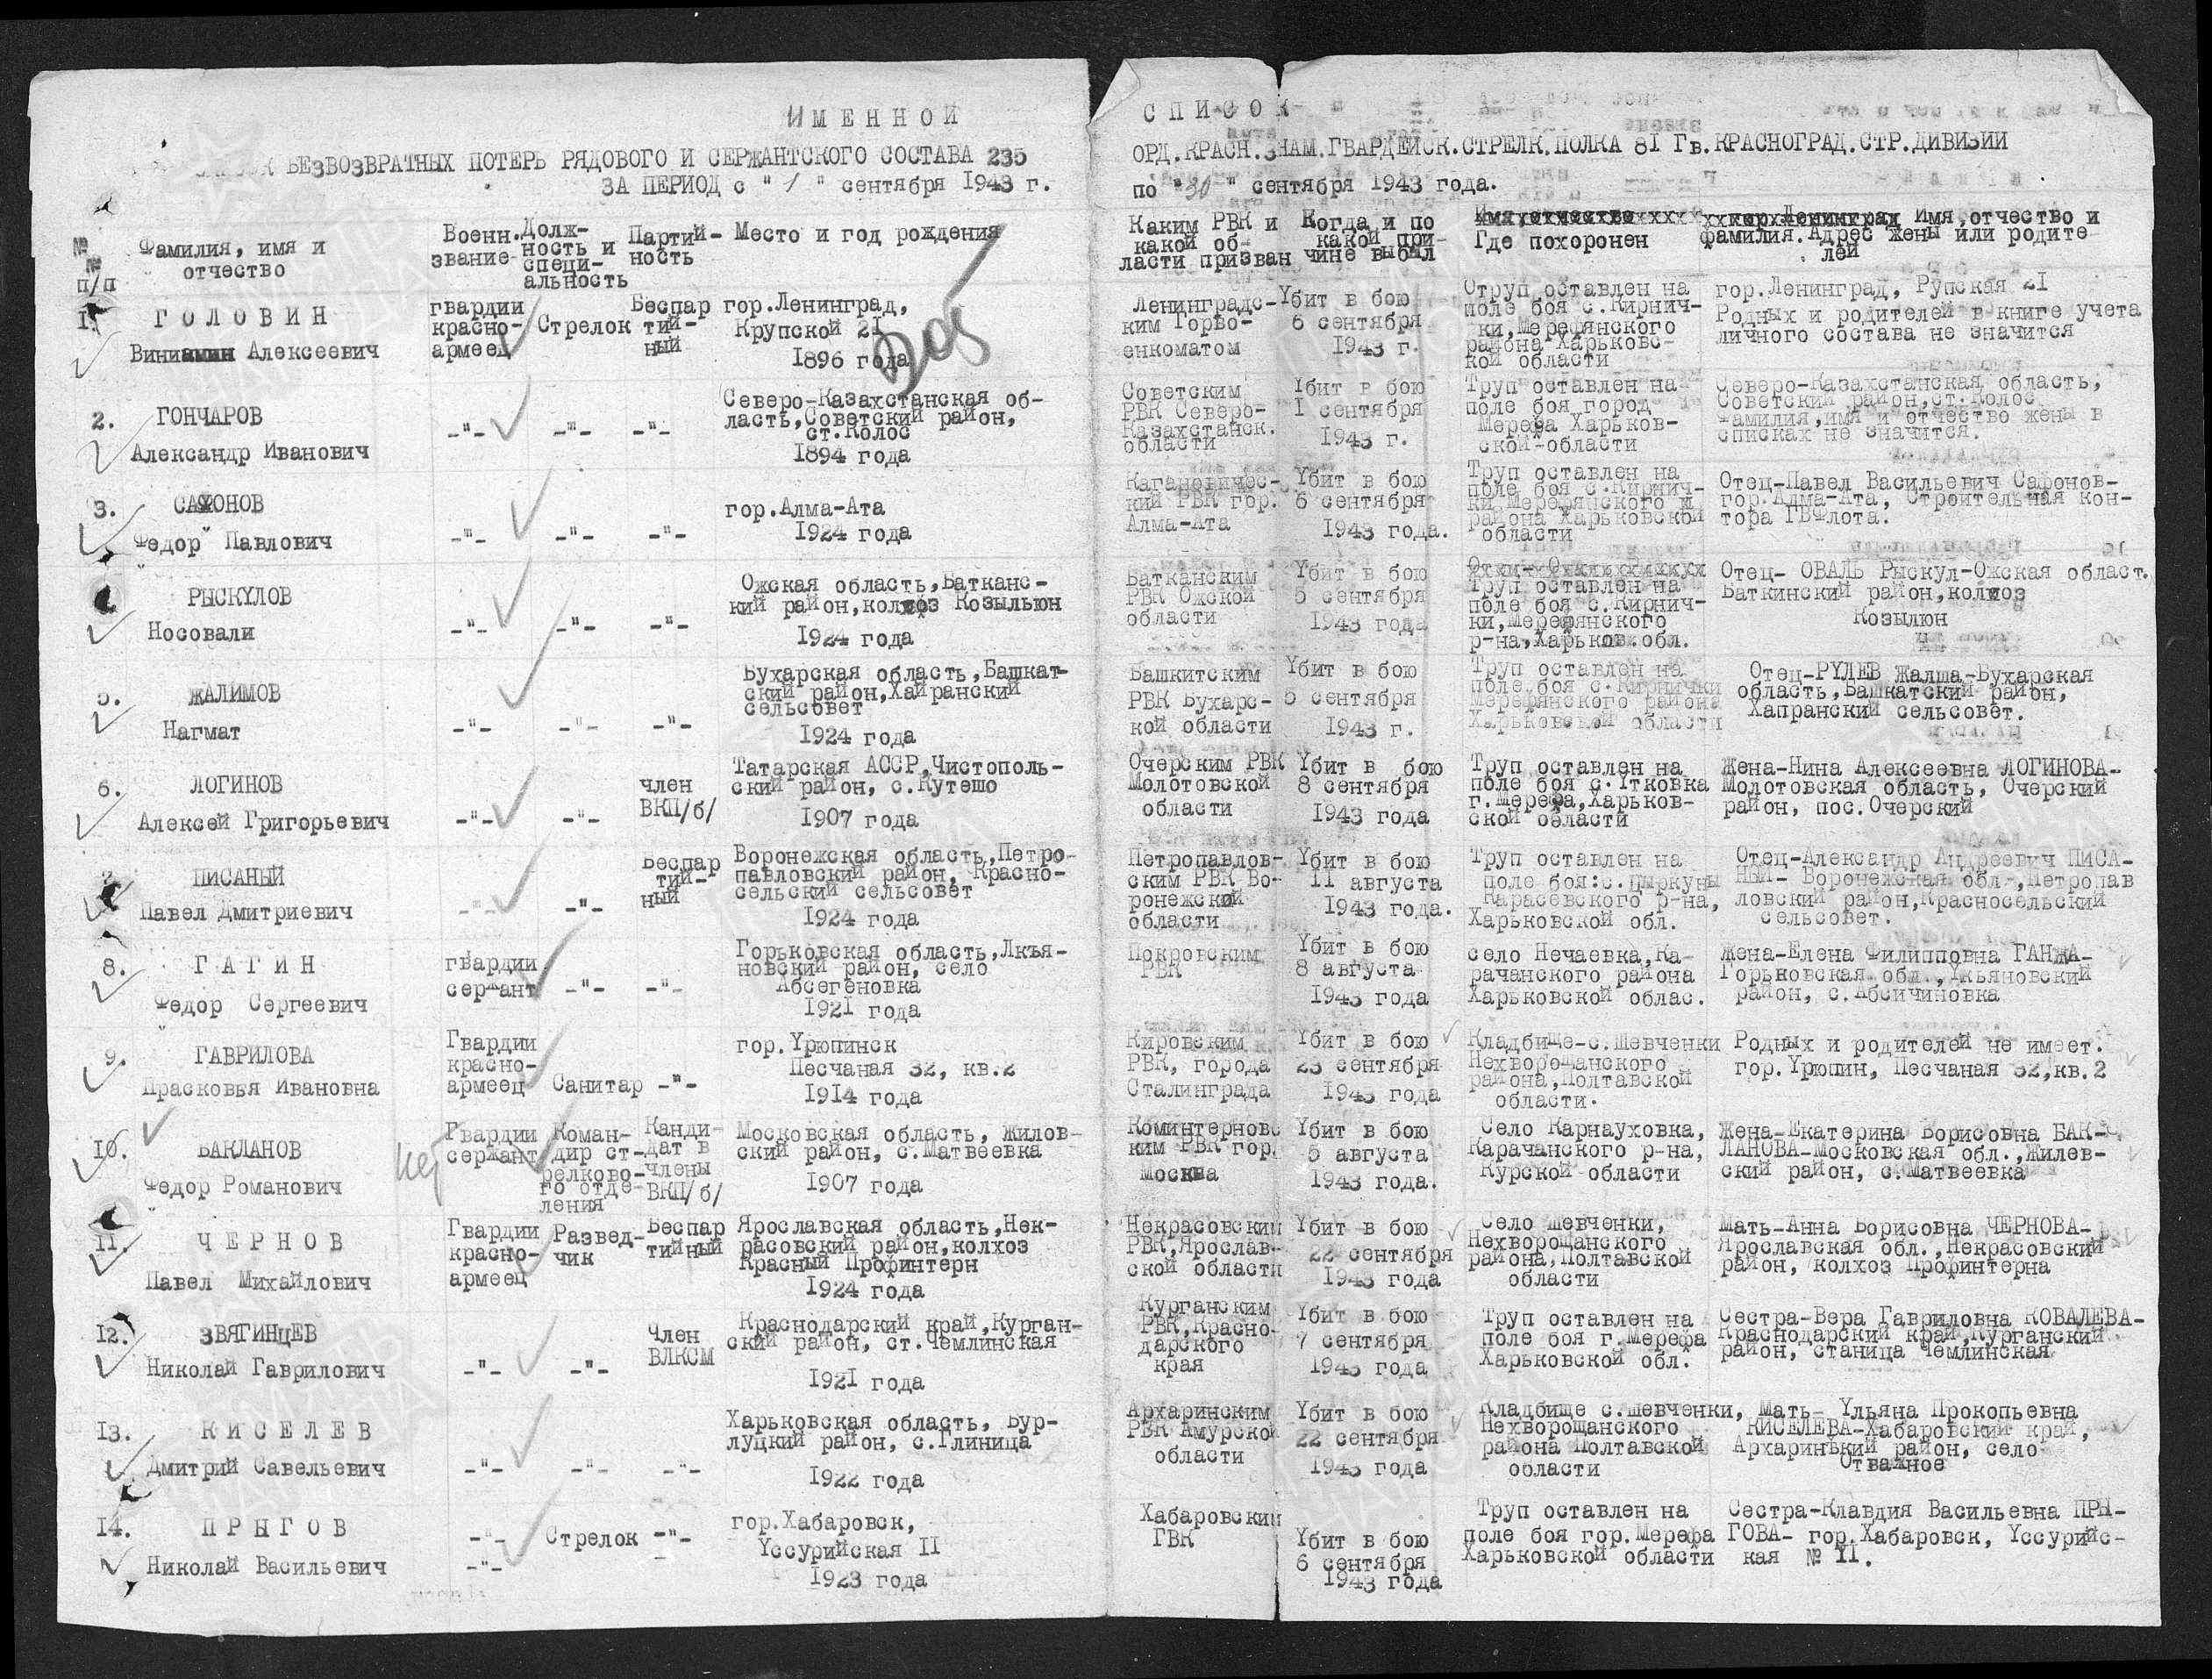 ИМЕННОЙ СПИСОК
БЕЗВОЗВРАТНЫХ ПОТЕРЬ РЯДОВОГО И СЕРЖАНТСКОГО СОСТАВА 235 ОРД.КРАСН.ЗНАМ.ГВАРДЕЙСК.СТРЕЛК.ПОЛКА 81 Гв.КРАСНОГРАД.СТР.ДИВИЗИИ
ЗА ПЕРИОД с "1" сентября 1943 г. по "30" сентября 1943 года.
№№ п/п
Фамилия, имя и
отчество
Военн.
звание
Долж-
ность и
специ-
альность
Партий-
ность
Место и год рождения
Каким РВК и
какой об-
ласти призван
Когда и по
какой при-
чине выбыл
Где похоронен
Имя,отчество и
фамилия.Адрес жены или родите
лей
1.
ГОЛОВИН
Виниамин Алексеевич
гвардии
красно-
армеец
Стрелок
Беспар
тий-
ный
гор.Ленинград,
Крупской 21
1896 года
Ленинградс-
ким Горво-
енкоматом
Убит в бою
6 сентября
1943 г.
Отруп оставлен на
поле боя с.Кирнич-
ки,Мерефянского
района Харьковс-
кой области
гор.Ленинград, Рупская 21
Родных и родителей в книге учета
личного состава не значится
2.
ГОНЧАРОВ
Александр Иванович
-"-
-"-
-"-
Северо-Казахстанская об-
ласть,Советский район,
ст.Колос
1894 года
Советским
РВК Северо-
Казахстанск.
области
Убит в бою
1 сентября
1943 г.
Труп оставлен на
поле боя город
Мерефа Харьков-
ской-области
Северо-Казахстанская область,
Советский район,ст.Колос
Фамилия,имя и отчество жены в
списках не значится.
3.
САФОНОВ
Федор Павлович
-"-
-"-
-"-
гор.Алма-Ата
1924 года
Кагановичес-
кий РВК гор.
Алма-Ата
Убит в бою
6 сентября
1943 года.
Труп оставлен на
поле боя с.Кирнич-
ки,Мерефянского и
района Харьковской
области
Отец-Павел Васильевич Сафонов-
гор.Алма-Ата, Строительная кон-
тора ГВФлота.
РЫСКУЛОВ
Носовали
-"-
-"-
-"-
Ожская область,Батканс-
кий район,колхоз Козыльюн
1924 года
Батканским
РВК Ожской
области
Убит в бою
5 сентября
1943 года
Труп оставлен на
поле боя с.Кирнич-
ки,Мерефянского
р-на,Харьков.обл.
Отец- ОВАЛЬ Рыскул-Ожская област.
Баткинский район,колхоз
Козылюн
5.
ЖАЛИМОВ
Нагмат
-"-
-"-
-"-
Бухарская область,Башкат-
ский район,Хайранский
сельсовет
1924 года
Башкитским
РВК Бухарс-
кой области
Убит в бою
5 сентября
1943 г.
Труп оставлен на
поле боя с.Кирнички
Мерефянского района
Харьковской области
Отец-РУЛЕВ Жалша-Бухарская
область,Башкатский район,
Хапранский сельсовет.
6.
ЛОГИНОВ
Алексей Григорьевич
-"-
-"-
член
ВКП/б/
Татарская АССР,Чистополь-
ский район, с.Кутешо
1907 года
Очерским РВК
Молотовской
области
Убит в бою
8 сентября
1943 года
Труп оставлен на
поле боя с.Утковка
г.Мерефа,Харьков-
ской области
Жена-Нина Алексеевна ЛОГИНОВА-
Молотовская область, Очерский
район, пос.Очерский
ПИСАНЫЙ
Павел Дмитриевич
-"-
-"-
Беспар
тий-
ный
Воронежская область,Петро-
павловский район, Красно-
сельский сельсовет
1924 года
Петропавлов-
ским РВК Во-
ронежской
области
Убит в бою
11 августа
1943 года.
Труп оставлен на
поле боя:с.Цыркуны
Карасевского р-на,
Харьковской обл.
Отец-Александр Андреевич ПИСА-
НЫЙ- Воронежская обл-,Петропав
ловский район,Красносельский
сельсовет.
8.
ГАГИН
Федор Сергеевич
гвардии
сержант
-"-
-"-
Горьковская область,Лкъя-
новский район, село
Абсегеновка
1921 года
Покровским
РВК
Убит в бою
8 августа
1943 года
село Нечаевка,Ка-
рачанского района
Харьковской облас.
Жена-Елена Филипповна ГАНЖА-
Горьковская обл.,Лкьяновский
район, с.Абсичиновка
9.
ГАВРИЛОВА
Прасковья Ивановна
Гвардии
красно-
армеец
Санитар
-"-
гор.Урюпинск
Песчаная 32, кв.2
1914 года
Кировским
РВК, города
Сталинграда
Убит в бою
23 сентября
1943 года
Кладбище-с.Шевченки
Нехворощанского
района,Полтавской
области.
Родных и родителей не имеет.
гор.Урюпин, Песчаная 32,кв.2
10.
БАКЛАНОВ
Федор Романович
Гвардии
сержант
Коман-
дир ст-
релково-
го отде-
ления
Канди-
дат в
члены
ВКП/б/
Московская область, Жилов-
ский район, с.Матвеевка
1907 года
Коминтерновс
ким РВК гор.
Москва
Убит в бою
5 августа
1943 года.
Село Карнауховка,
Карачанского р-на,
Курской области
Жена-Екатерина Борисовна БАК-
ЛАНОВА-Московская обл.,Жилев-
ский район, с.Матвеевка
11.
ЧЕРНОВ
Павел Михайлович
Гвардии
красно-
армеец
Развед-
чик
Беспар
тийный
Ярославская область,Нек-
расовский район,колхоз
Красный Профинтерн
1924 года
Некрасовским
РВК,Ярослав-
ской области
Убит в бою
22 сентября
1943 года
Село Шевченки,
Нехворощанского
района,Полтавской
области
Мать-Анна Борисовна ЧЕРНОВА-
Ярославская обл.,Некрасовский
район, колхоз Профинтерна
12.
ЗВЯГИНЦЕВ
Николай Гаврилович
-"-
-"-
Член
ВЛКСМ
Краснодарский край,Курган-
ский район, ст.Чемлинская
1921 года
Курганским
РВК,Красно-
дарского
края
Убит в бою
7 сентября
1943 года
Труп оставлен на
поле боя г.Мерефа
Харьковской обл.
Сестра-Вера Гавриловна КОВАЛЕВА-
Краснодарский край,Курганский
район, станица Чемлинская
13.
КИСЕЛЕВ
Дмитрий Савельевич
-"-
-"-
-"-
Харьковская область, Бур-
луцкий район, с.Глиница
1922 года
Архаринским
РВК Амурской
области
Убит в бою
22 сентября
1943 года
Кладбище с.Шевченки,
Нехворощанского
района Полтавской
области
Мать- Ульяна Прокопьевна
КИСЕЛЕВА-Хабаровский край,
Архаринький район, село
Отважное
14.
ПРЫГОВ
Николай Васильевич
-"-
-"-
Стрелок
-"-
гор.Хабаровск,
Уссурийская 11
1923 года
Хабаровским
ГВК
Убит в бою
6 сентября
1943 года
Труп оставлен на
поле боя гор.Мерефа
Харьковской области
Сестра-Клавдия Васильевна ПРЫ-
ГОВА- гор.Хабаровск, Уссурийс-
кая № 11.